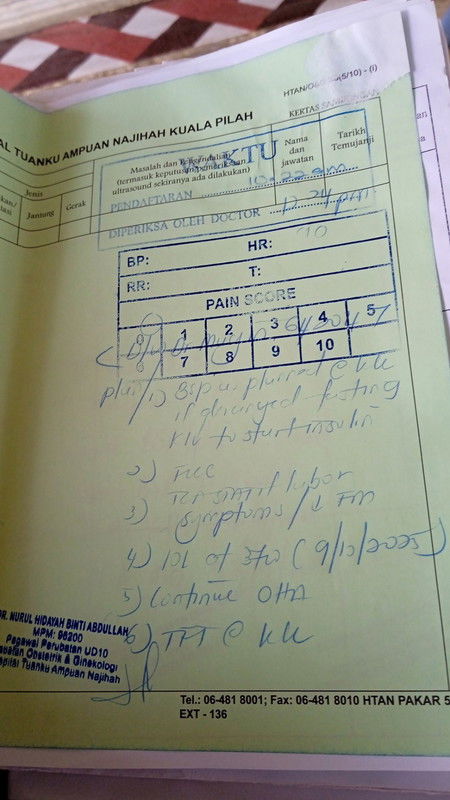 HTAN/O&G (5/10) - (i)
AL TUANKU AMPUAN NAJIHAH KUALA PILAH
KERTAS
Jenis
Jantung
Gerak
Masalah dan Pengendalian
(termasuk keputusan pemeriksaan
ultrasound sekiranya ada dilakukan)
WAKTU
Nama
dan
jawatan
Tarikh
Temujanji
PENDAFTARAN 10.22am
DIPERIKSA OLEH DOCTOR 12.24pm
BP: HR: 90
RR: T:
PAIN SCORE
0 1 2 3 4 5
6 7 8 9 10
plan/ 1) BSP @ KK
if deranged fasting
KIV to start insulin
2) FKC
3) TCA STAT if labor
symptoms / ↓ FM
4) IOL at 37w (9/10/2025)
5) Continue OHA
6) TFT @ KK
DR. NURUL HIDAYAH BINTI ABDULLAH
MPM: 96200
Pegawai Perubatan UD10
Jabatan Obstetrik & Ginekologi
Hospital Tuanku Ampuan Najihah
Tel.: 06-481 8001; Fax: 06-481 8010 HTAN PAKAR 5
EXT - 136